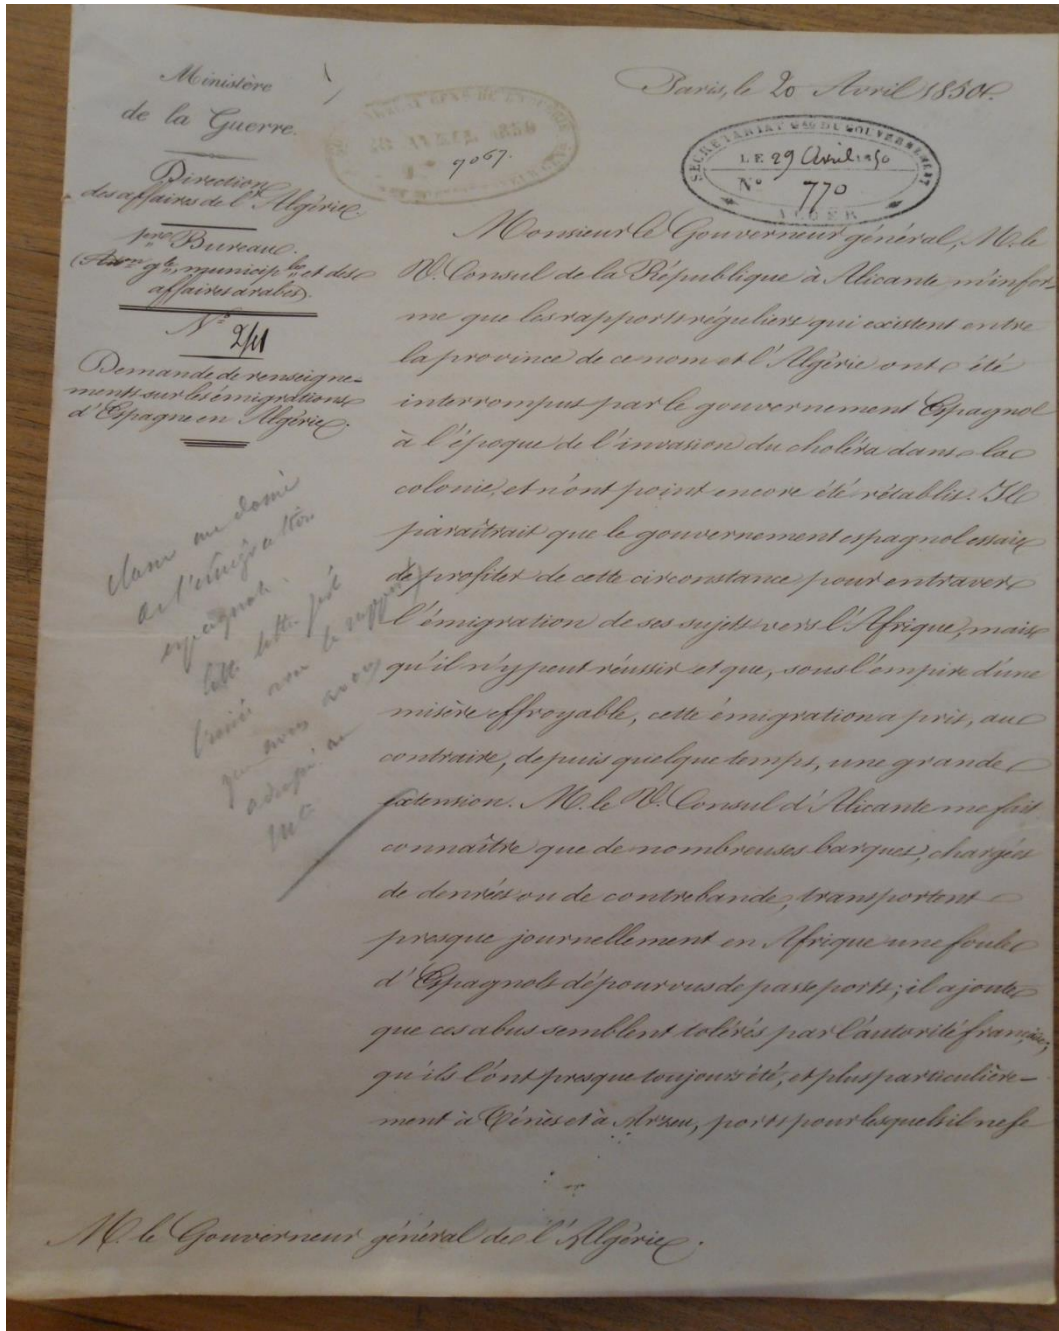 Ministère
de la Guerre.
Direction
des affaires de l'Algérie.
1er Bureau.
(Admon gle, municiple et des
affaires arabes).
N°
241
Demande de renseigne-
ments sur les émigrations
d'Espagne en Algérie.
Paris, le 20 Avril 1850.
AVRIL 1850
9067.
SECRÉTARIAT GÉAL DU GOUVERNEMENT
LE 29 Avril 1850
N° 770
ALGER
Monsieur le Gouverneur général, M. le
V. Consul de la République à Alicante m'infor-
me que les rapports réguliers qui existent entre
la province de ce nom et l'Algérie ont été
interrompus par le gouvernement Espagnol
à l'époque de l'invasion du choléra dans la
colonie, et n'ont point encore été rétablis. Il
paraîtrait que le gouvernement espagnol essaie
de profiter de cette circonstance pour entraver
l'émigration de ses sujets vers l'Afrique, mais
qu'il n'y peut réussir et que, sous l'empire d'une
misère effroyable, cette émigration a pris, au
contraire, depuis quelque temps, une grande
extension. M. le V. Consul d'Alicante me fait
connaître que de nombreuses barques, chargées
de denrées ou de contrebande, transportent
presque journellement en Afrique une foule
d'Espagnols dépourvus de passeports; il ajoute
que ces abus semblent tolérés par l'autorité française;
qu'ils l'ont presque toujours été, et plus particulière-
ment à Ténès et à Arzeu, ports pour lesquels il ne se
dans
de l'émigration
espagnole.
cette lettre
avec le rapport
que nous avons
adressé au
Mtre
M. le Gouverneur général de l'Algérie.